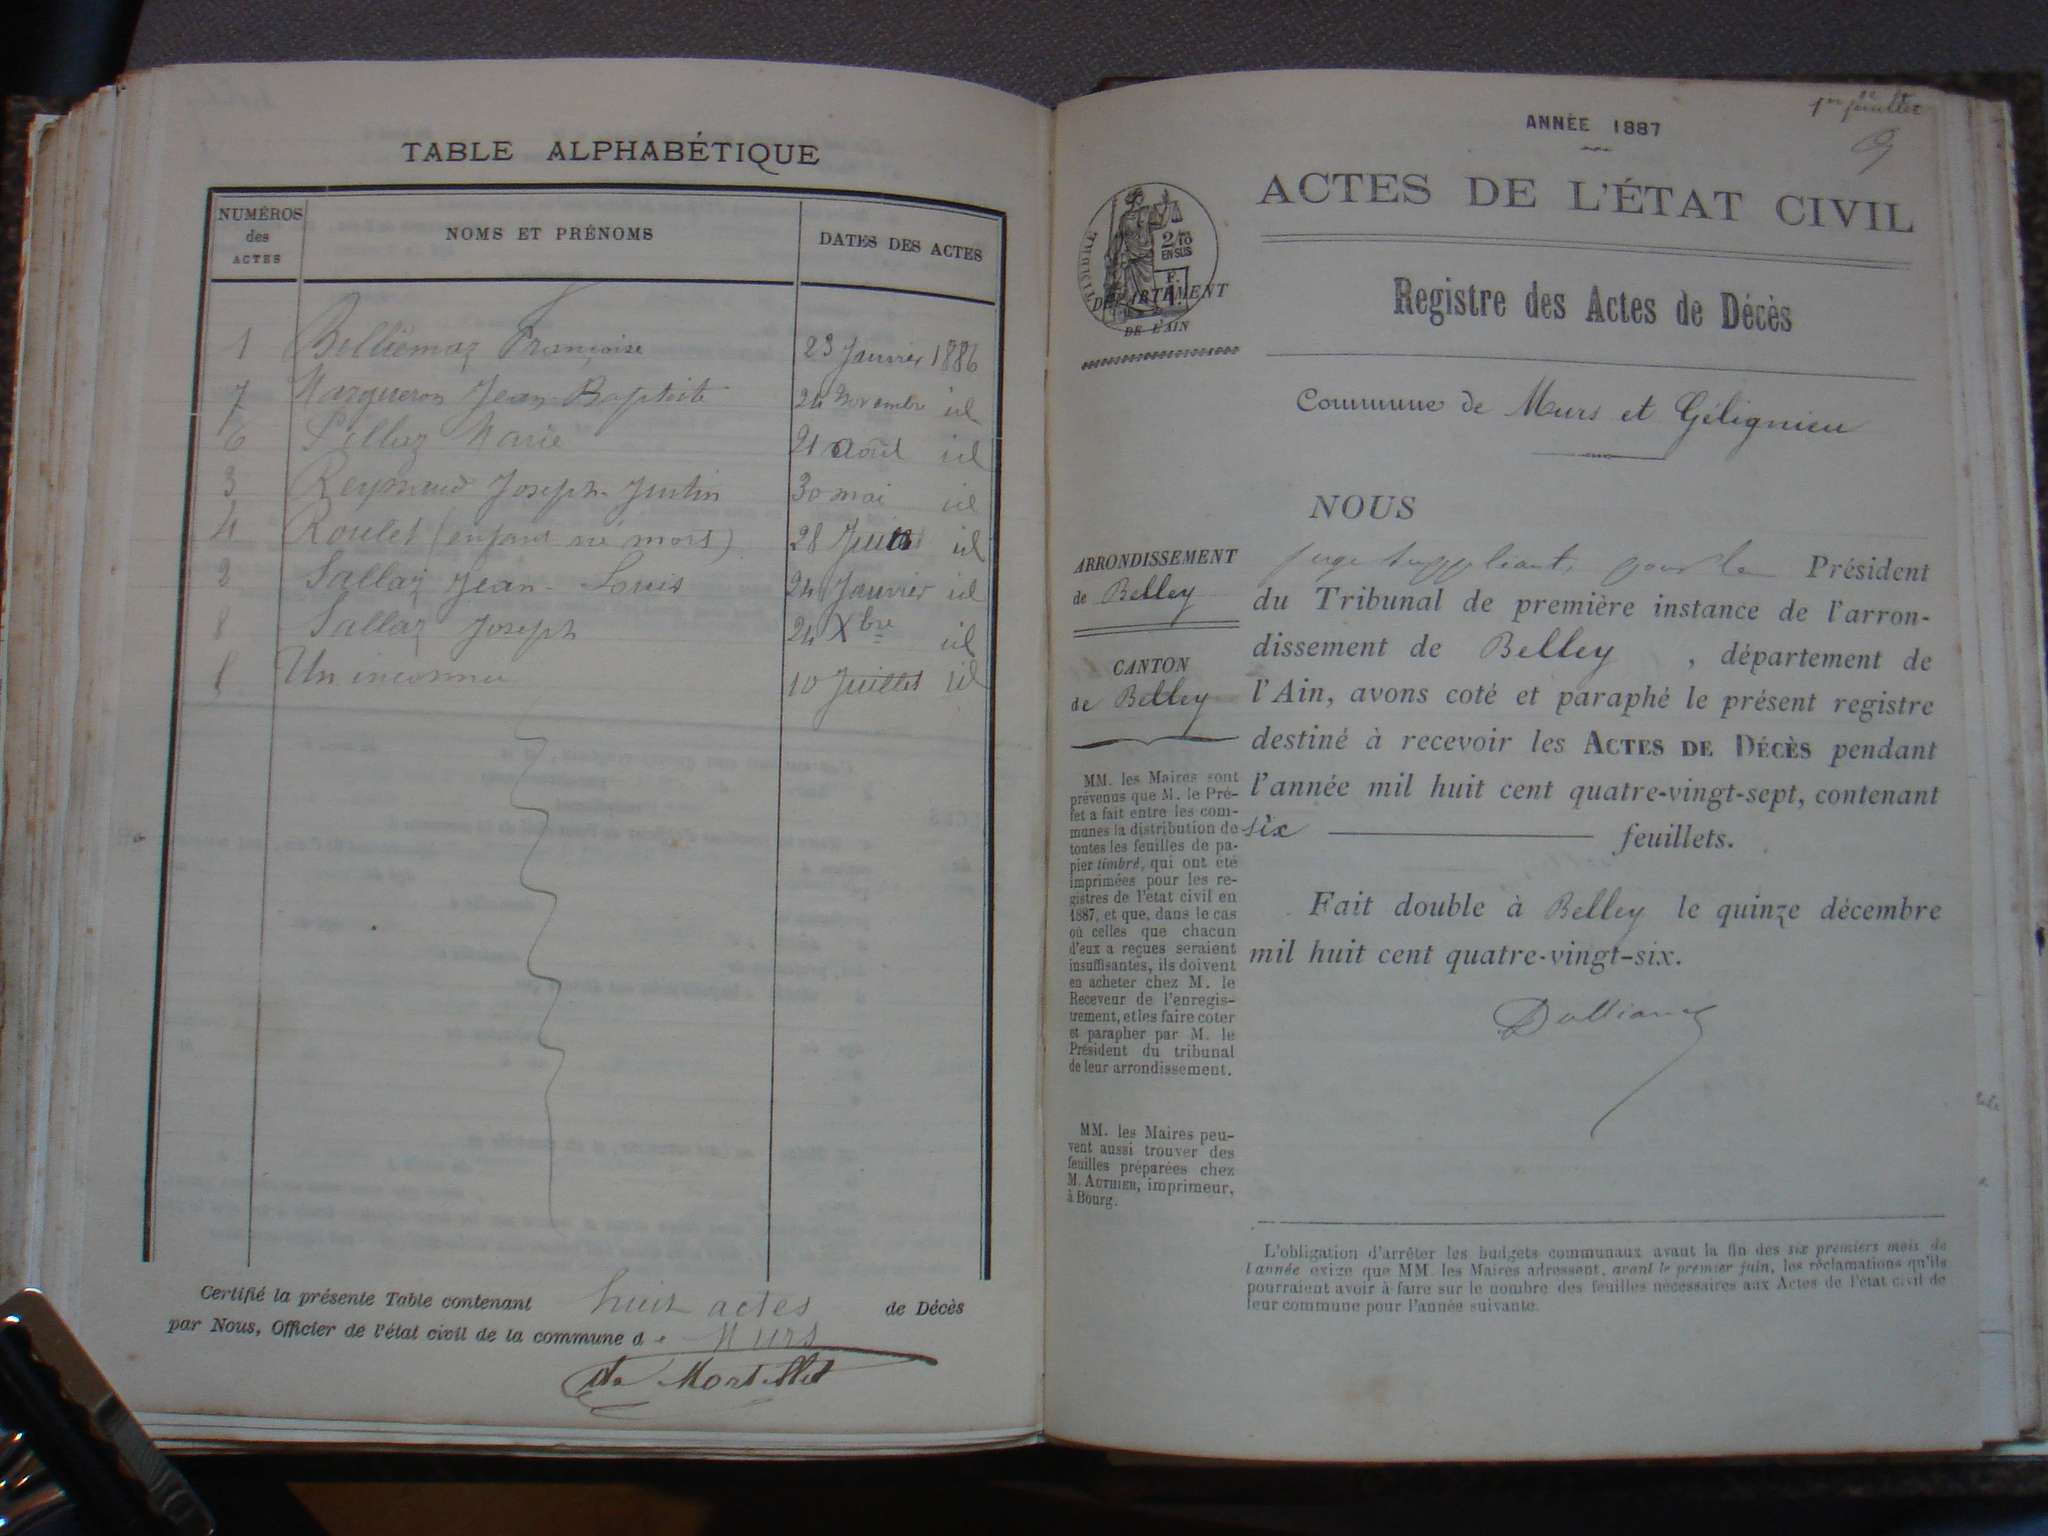 TABLE ALPHABÉTIQUE
NUMÉROS des ACTES
NOMS ET PRÉNOMS
DATES DES ACTES
1 Belliemaz Françoise 23 Janvier 1886
7 Margueron Jean Baptiste 24 Novembre id
6 Pilluz Marie 21 Août id
3 Reynaud Joseph-Justin 30 mai id
4 Roulet (enfant né mort) 28 Juin id
2 Sallaz Jean-Louis 24 Janvier id
8 Sallaz Joseph 24 Xbre id
Un inconnu 10 Juillet id
Certifié la présente Table contenant huit actes de Décès
par Nous, Officier de l'état civil de la commune de Murs
de Mortillet
1er feuillet
ANNÉE 1887
ACTES DE L'ÉTAT CIVIL
TIMBRE
2/10 EN SUS
DÉPARTEMENT
DE L'AIN
Registre des Actes de Décès
Commune de Murs et Gélignieu
NOUS
ARRONDISSEMENT
de Belley
CANTON
de Belley
juge suppléant, pour le Président
du Tribunal de première instance de l'arron-
dissement de Belley, département de
l'Ain, avons coté et paraphé le présent registre
destiné à recevoir les ACTES DE DÉCÈS pendant
l'année mil huit cent quatre-vingt-sept, contenant
six feuillets.
Fait double à Belley le quinze décembre
mil huit cent quatre-vingt-six.
MM. les Maires sont
prévenus que M. le Pré-
fet a fait entre les com-
munes la distribution de
toutes les feuilles de pa-
pier timbré, qui ont été
imprimées pour les re-
gistres de l'état civil en
1887, et que, dans le cas
où celles que chacun
d'eux a reçues seraient
insuffisantes, ils doivent
en acheter chez M. le
Receveur de l'enregis-
trement, et les faire coter
et parapher par M. le
Président du tribunal
de leur arrondissement.
MM. les Maires peu-
vent aussi trouver des
feuilles préparées chez
M. AUTHIER, imprimeur,
à Bourg.
L'obligation d'arrêter les budgets communaux avant la fin des six premiers mois de
l'année exige que MM. les Maires adressent, avant le premier juin, les réclamations qu'ils
pourraient avoir à faire sur le nombre des feuilles nécessaires aux Actes de l'état civil de
leur commune pour l'année suivante.